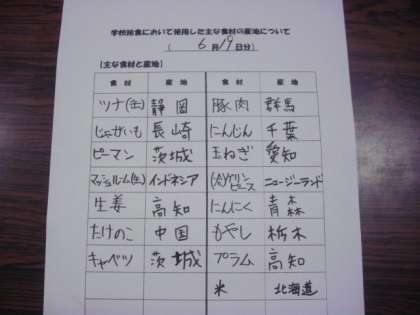 学校給食において使用した主な食材の産地について
( 6月19日分)
【主な食材と産地】
食材 産地 食材 産地
ツナ(缶) 静岡 豚肉 群馬
じゃがいも 長崎 にんじん 千葉
ピーマン 茨城 玉ねぎ 愛知
マッシュルーム(缶) インドネシア (冷)グリンピース ニュージーランド
生姜 高知 にんにく 青森
たけのこ 中国 もやし 栃木
キャベツ 茨城 プラム 高知
米 北海道